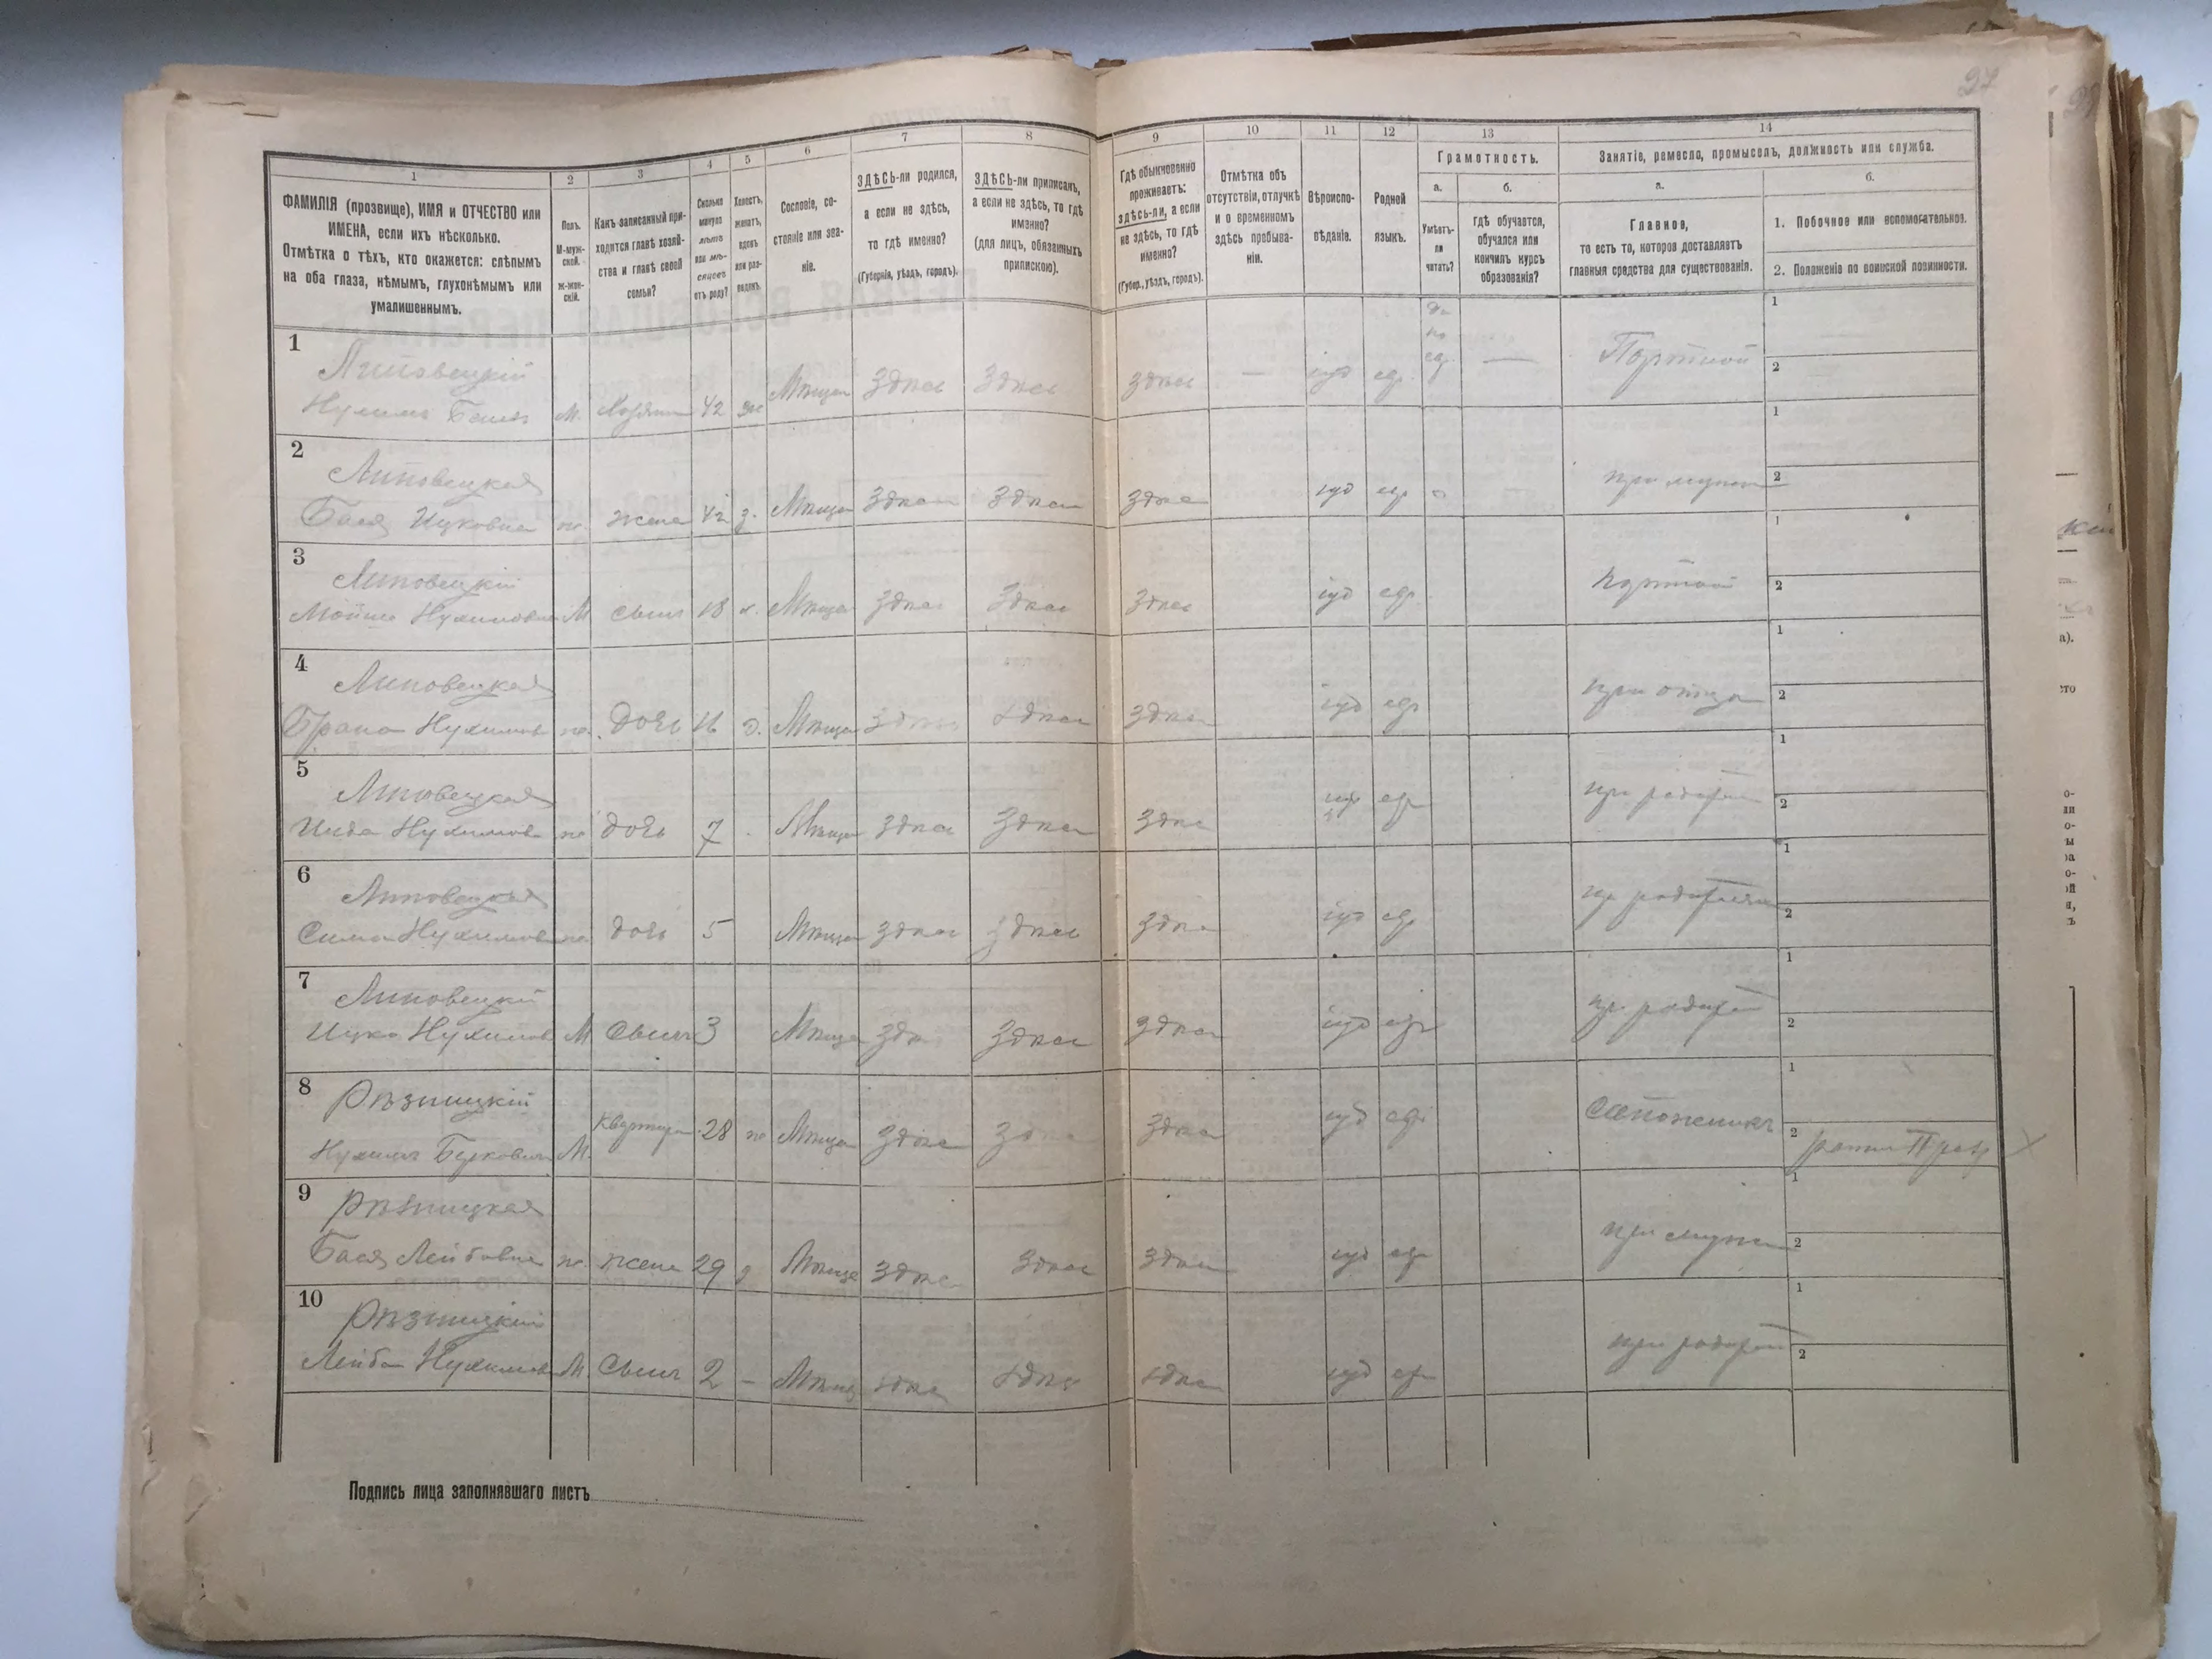 27
1
2
3
4
5
6
7
8
9
10
11
12
13
14
ФАМИЛІЯ (прозвище), ИМЯ и ОТЧЕСТВО или
ИМЕНА, если ихъ нѣсколько.
Отмѣтка о тѣхъ, кто окажется: слѣпымъ
на оба глаза, нѣмымъ, глухонѣмымъ или
умалишеннымъ.
Полъ.
М-муж-
ской.
Ж-жен-
скій.
Какъ записанный при-
ходится главѣ хозяй-
ства и главѣ своей
семьи?
Сколько
минуло
лѣтъ
или мѣ-
сяцевъ
отъ роду?
Холостъ,
женатъ,
вдовъ
или раз-
веденъ.
Сословіе, со-
стояніе или зва-
ніе.
ЗДѢСЬ-ли родился,
а если не здѣсь,
то гдѣ именно?
(Губернія, уѣздъ, городъ).
ЗДѢСЬ-ли приписанъ,
а если не здѣсь, то гдѣ
именно?
(для лицъ, обязанныхъ
припискою).
Гдѣ обыкновенно
проживаетъ:
здѣсь-ли, а если
не здѣсь, то гдѣ
именно?
(Губер., уѣздъ, городъ).
Отмѣтка объ
отсутствіи, отлучкѣ
и о временномъ
здѣсь пребыва-
ніи.
Вѣроиспо-
вѣданіе.
Родной
языкъ.
Грамотность.
а.
Умѣетъ-
ли
читать?
б.
Гдѣ обучается,
обучался или
кончилъ курсъ
образованія?
Занятіе, ремесло, промыселъ, должность или служба.
а.
Главное,
то есть то, которое доставляетъ
главныя средства для существованія.
б.
1. Побочное или вспомогательное.
2. Положеніе по воинской повинности.
1
Липовецкій
Нухимъ М. Хозяинъ 42 ж Мѣщан Здѣсь Здѣсь Здѣсь — іуд евр да по евр — Портной 1 2
2
Липовецкая
Бася Ицковна ж. жена 42 з. Мѣщан Здѣсь Здѣсь Здѣсь іуд евр при мужѣ 1 2
3
Липовецкій
Мойше Нухимович М сынъ 18 х. Мѣщан Здѣсь Здѣсь Здѣсь іуд евр портной 1 2
4
Липовецкая
Нухимов ж. дочь 16 д. Мѣщан здѣсь здѣсь здѣсь іуд евр при отцѣ 1 2
5
Липовецкая
Нухимов ж дочь 7 Мѣщан здѣсь здѣсь здѣс іуд евр при родит 1 2
6
Липовецкая
Сима Нухимов ж дочь 5 Мѣщан здѣсь здѣсь здѣс іуд евр пр родител 1 2
7
Липовецкій
Ицко Нухимов М сынъ 3 Мѣщан здѣ здѣсь здѣсь іуд евр пр. родит 1 2
8
Рѣзницкій
Нухимъ Беркович М. квартир 28 ж Мѣщан здѣсь здѣсь здѣсь іуд евр Сапожникъ 1 2
9
Рѣзницкая
Бася Лейбовна ж. жена 29 з Мѣщан здѣсь здѣсь здѣсь іуд евр при мужѣ 1 2
10
Рѣзницкій
Лейба Нухимов М сынъ 2 — Мѣщан здѣсь здѣсь здѣсь іуд евр при родит 1 2
Подпись лица заполнявшаго листъ